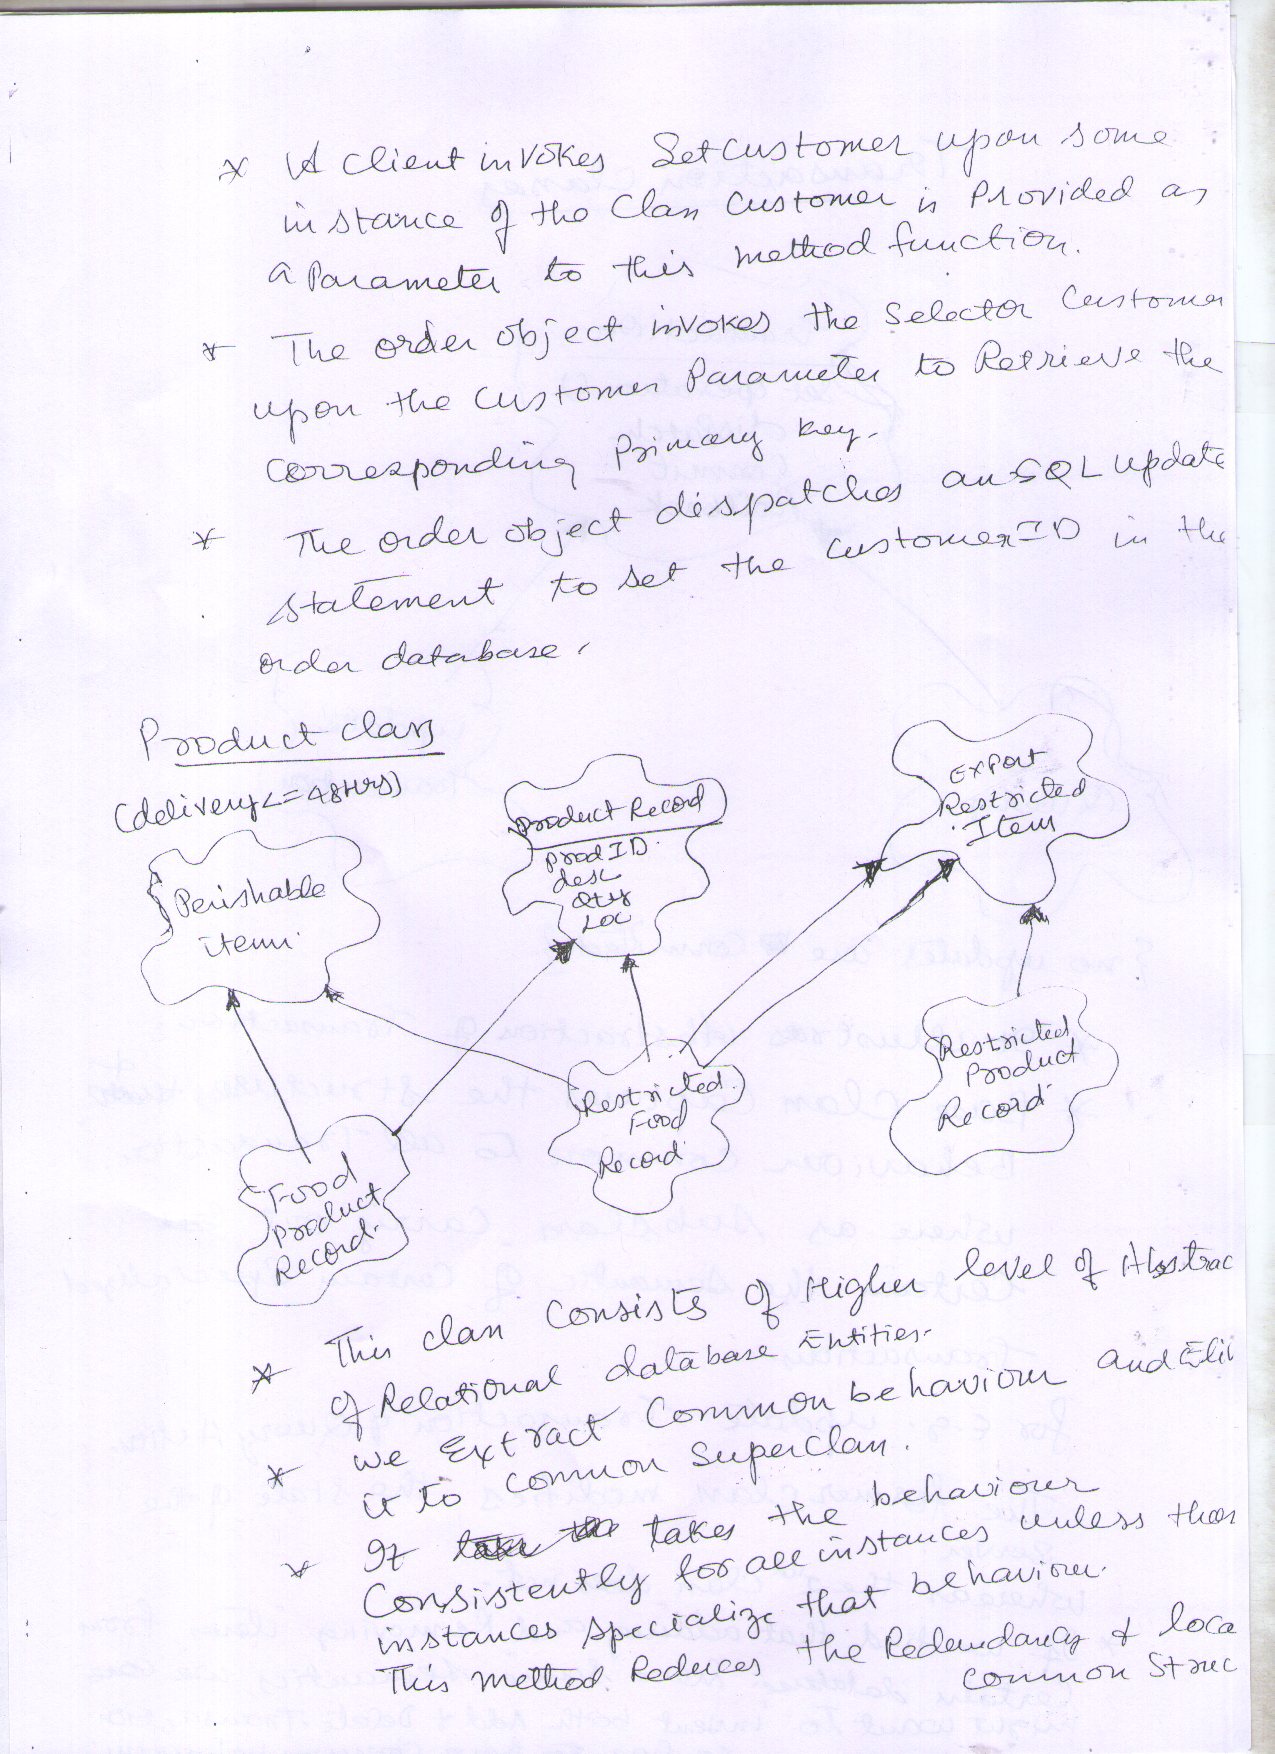 * A client invokes SetCustomer upon some
instance of the Class Customer is Provided as
a Parameter to this method function.
* The order object invokes the Selector Customer
upon the customer Parameter to Retrieve the
corresponding Primary key.
* The order object dispatches an SQL update
statement to set the customerID in the
order database.
Product class
(delivery <= 48Hrs)
Perishable
item.
Product Record
prodID.
desc
Qty
Loc
Export
Restricted
Item
Food
Product
Record.
Restricted.
Food
Record.
Restricted
Product
Record.
* This class consists of Higher level of Abstrac
of Relational database Entities.
* we Extract Common behaviour and Eli
it to common Superclass.
* It takes the behaviour
Consistently for all instances unless
instances specialize that behaviour.
This method. Reduces the Redundancy & loca
common Struc